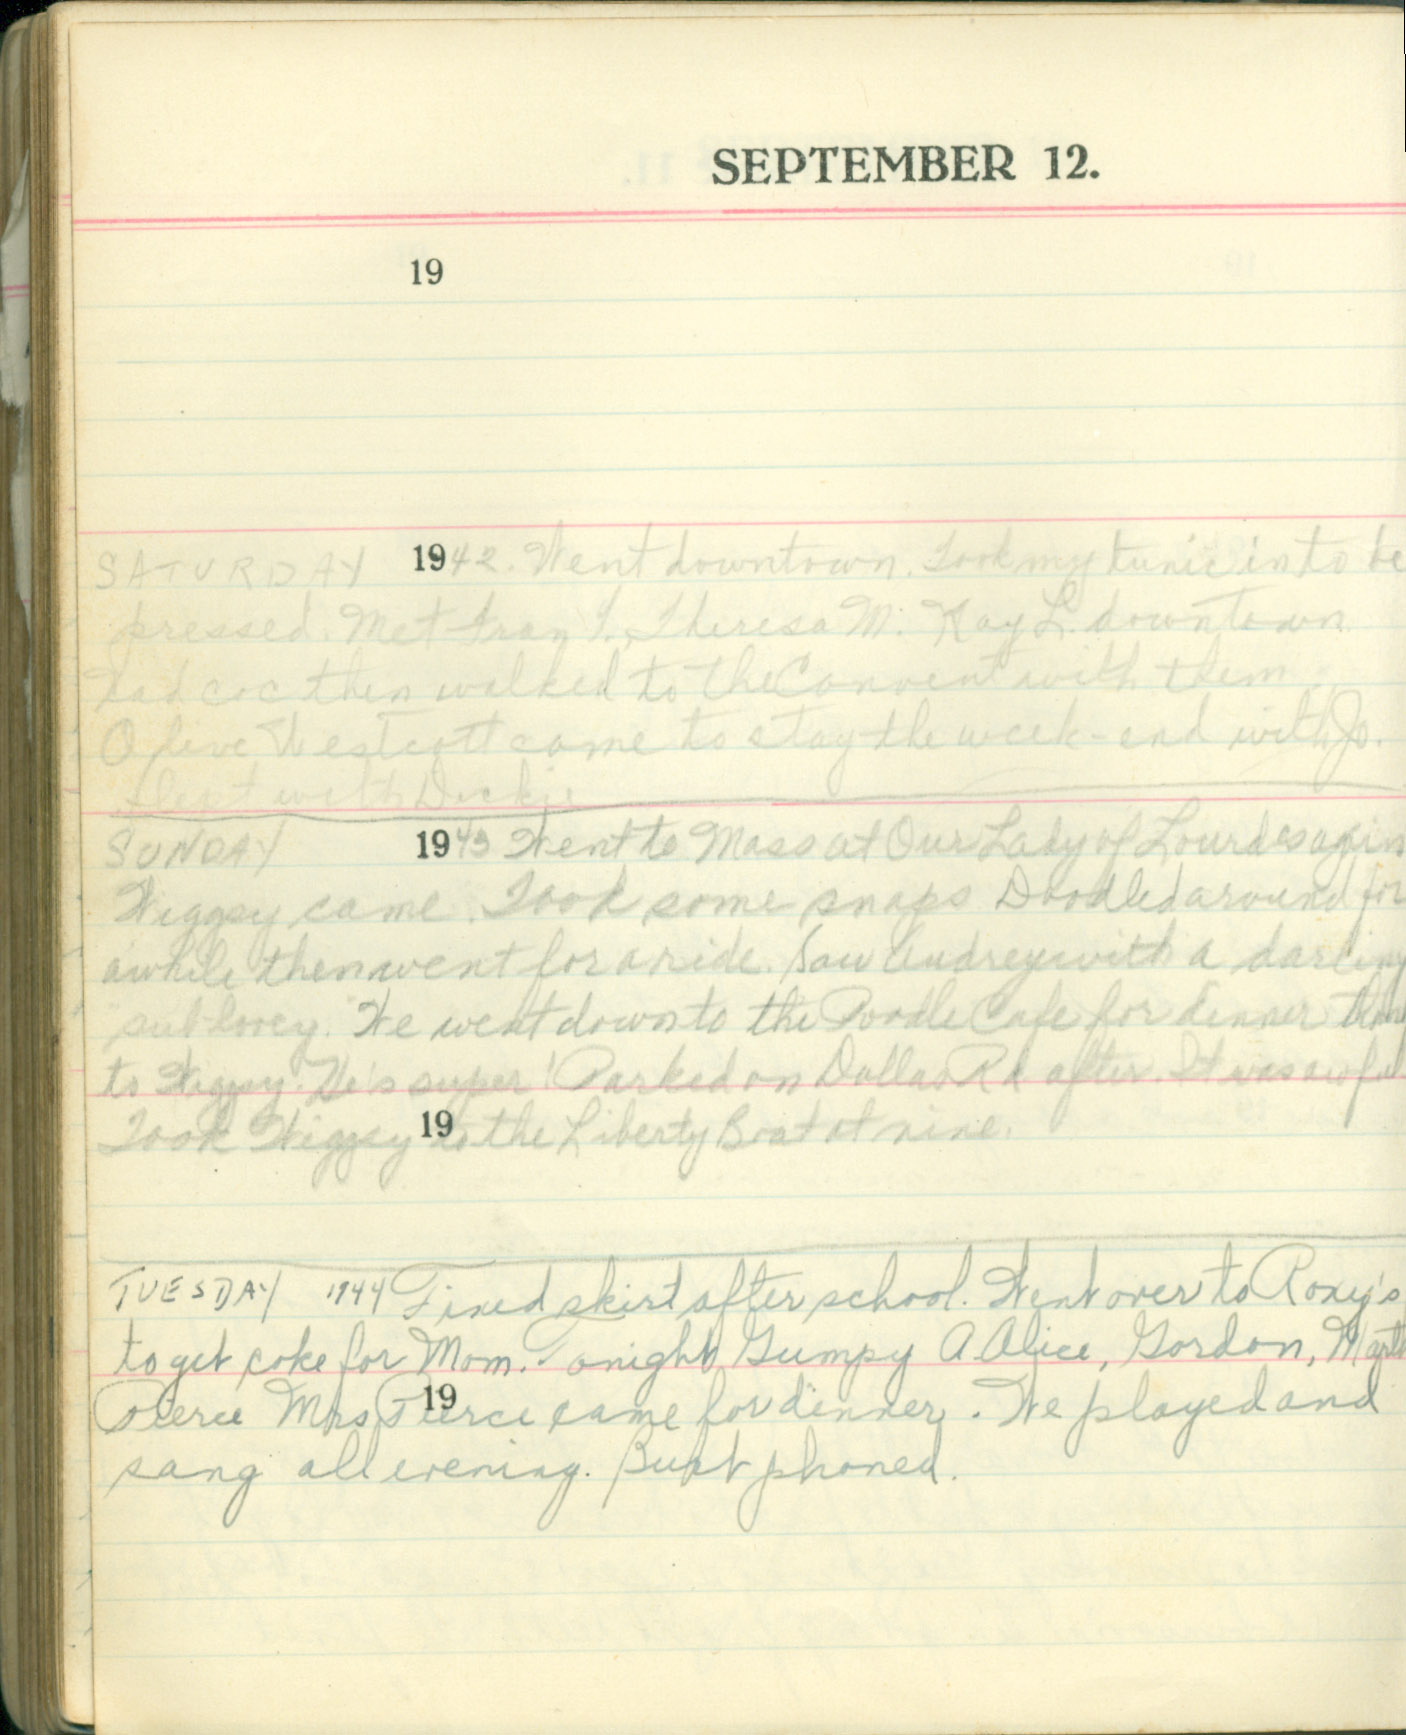 SEPTEMBER 12.
19
SATURDAY 1942. Went downtown. Took my tunic in to be
pressed. Met Fran T. Theresa M. Kay L. downtown.
Had coc then walked to the Convent with them.
Olive Westcott came to stay the week-end with Jo.
Slept with Dickie
SUNDAY 1943 Went to Mass at Our Lady of Lourdes again
Wiggsy came. Took some snaps Doodled around for
awhile then went for a ride. Saw Audrey with a darling
We went down to the Poodle Cafe for dinner then
to Wiggsy. He's super! Parked on Dallas Rd after. It was awful
19
Took Wiggsy to the Liberty Boat at nine.
TUESDAY 1944 Fixed skirt after school. Went over to Roxy's
to get coke for Mom. Tonight Gumpy A Alice, Gordon,
19
Pierce Mrs Pierce came for dinner. We played and
sang all evening. Burt phoned.